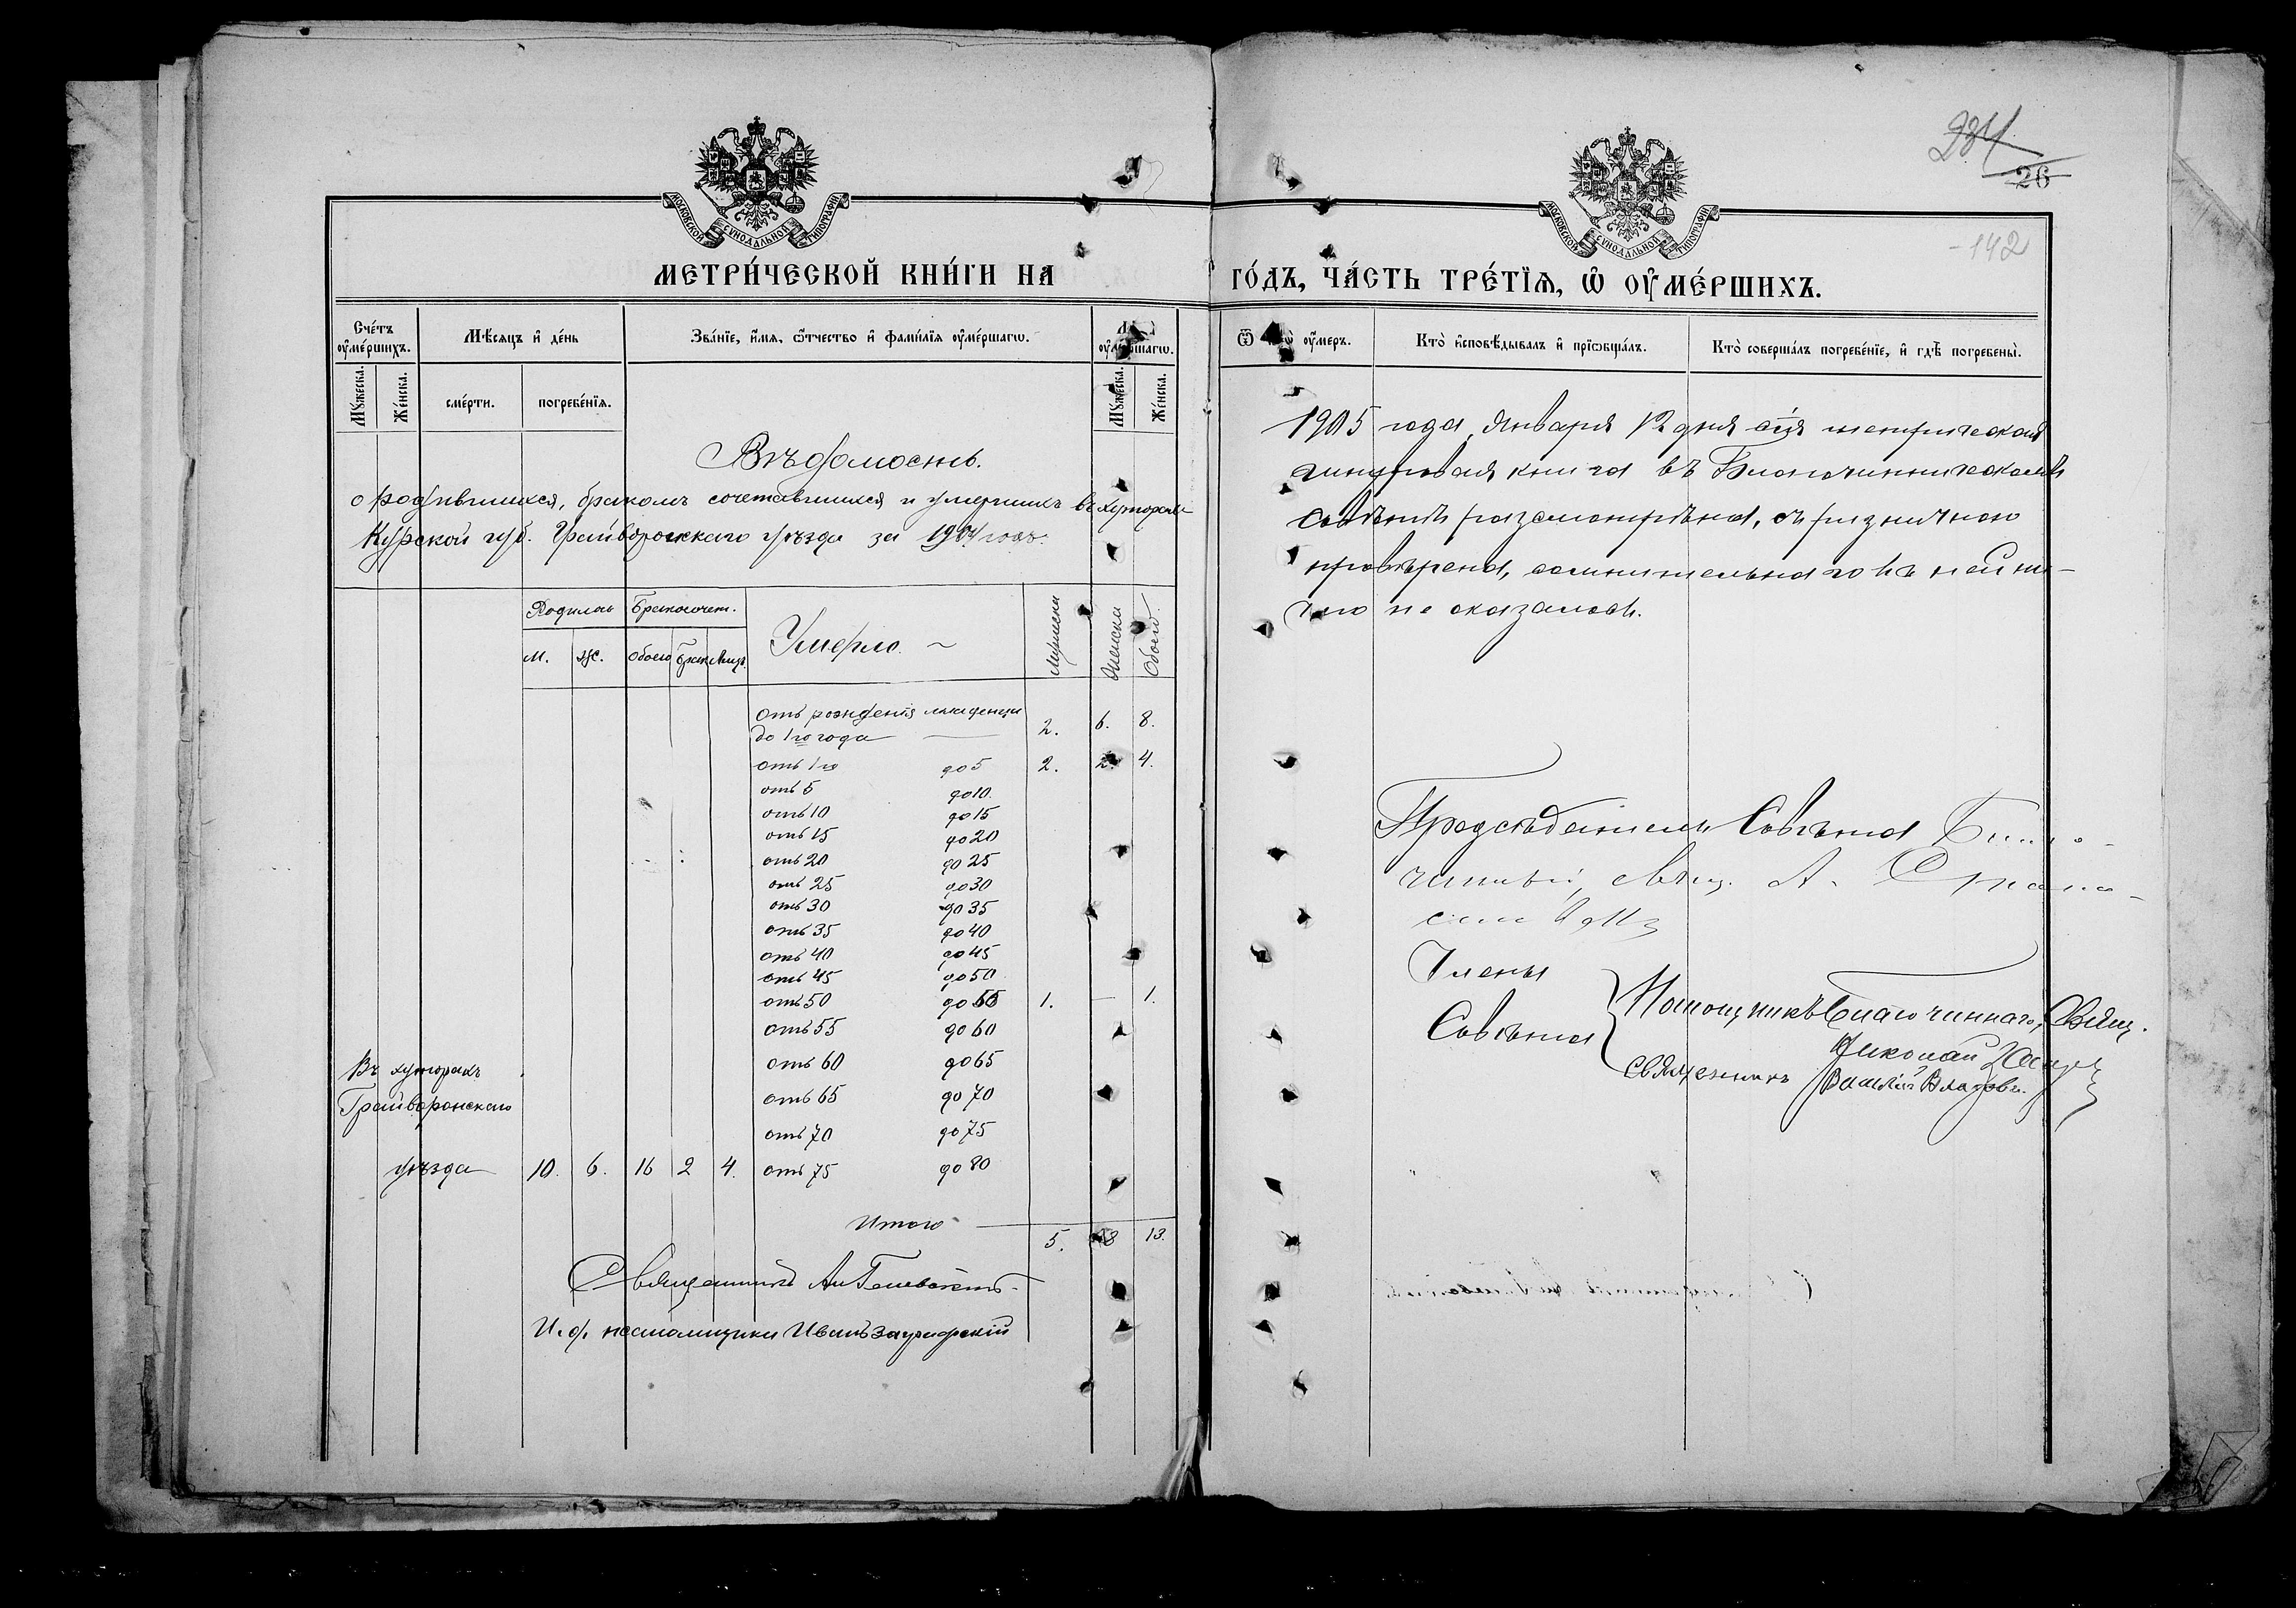 МОСКОВСКОЙ СѴНОДАЛЬНОЙ ТИПОГРАФІИ
МЕТРИ́ЧЕСКОЙ КНИ́ГИ НА
Сче́тъ оу҆ме́ршихъ.
Мѣсяцъ и҆ де́нь
Зва́нїе, и҆́мѧ, ѻ҆́тчество и҆ фами́лїѧ оу҆ме́ршагѡ.
оу҆ме́ршагѡ.
Мꙋ́жеска.
Же́нска.
сме́рти.
погребе́нїѧ.
Мꙋ́жеска.
Же́нска.
Вѣдомость.
о родившихся, бракомъ сочетавшихся и умершихъ въ хуторахъ
Курской губ. Грайворонскаго уѣзда за 1904 годъ.
Родилось
Бракосочет.
Умерло.
Мужеска
Женска
Обоего
М.
Ж.
Обоего
Брак
Лицъ
Отъ рожденія младенцы
до 1го года 2. 6. 8.
отъ 1го до 5 2. 2. 4.
отъ 5 до 10.
отъ 10 до 15
отъ 15 до 20
отъ 20 до 25
отъ 25 до 30
отъ 30 до 35
отъ 35 до 40
отъ 40 до 45
отъ 45 до 50
отъ 50 до 55 1. — 1.
отъ 55 до 60
отъ 60 до 65
отъ 65 до 70
отъ 70 до 75
Въ хуторахъ
Грайворонскаго
уѣзда 10. 6. 16 2 4. отъ 75 до 80
Итого 5. 8 13.
Священникъ Ан
И. д. псаломщика Иванъ
234
26
142
МОСКОВСКОЙ СѴНОДАЛЬНОЙ ТИПОГРАФІИ
ГО́ДЪ, ЧА́СТЬ ТРЕ́ТЇѦ, Ѡ҆ ОУ҆МЕ́РШИХЪ.
оу҆́меръ.
Кто̀ и҆сповѣ́дывалъ и҆ прїѡбща́лъ.
Кто̀ соверша́лъ погребе́нїе, и҆ гдѣ̀ погребены̀.
1905 года, Января 12 дня сія метрическая
шнуровая книга въ Благочинническомъ
Совѣтѣ разсмотрѣна, съ
провѣрена, сомнительнаго въ ней ни-
чего не оказалось.
Предсѣдатель Совѣта Благо-
чинный, свящ. А.
Члены
Совѣта
Помощникъ Благочиннаго, Свящ.
Николай
Священникъ Василій